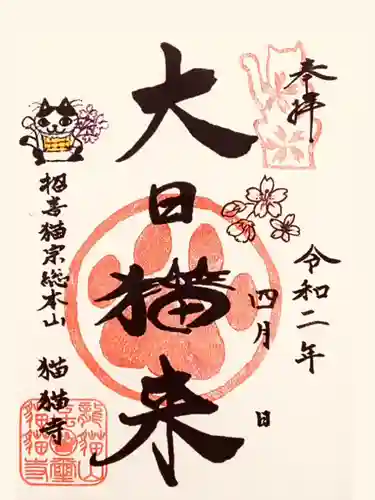 奉拝
令和二年
四月 日
大日猫来
招喜猫宗総本山 猫猫寺